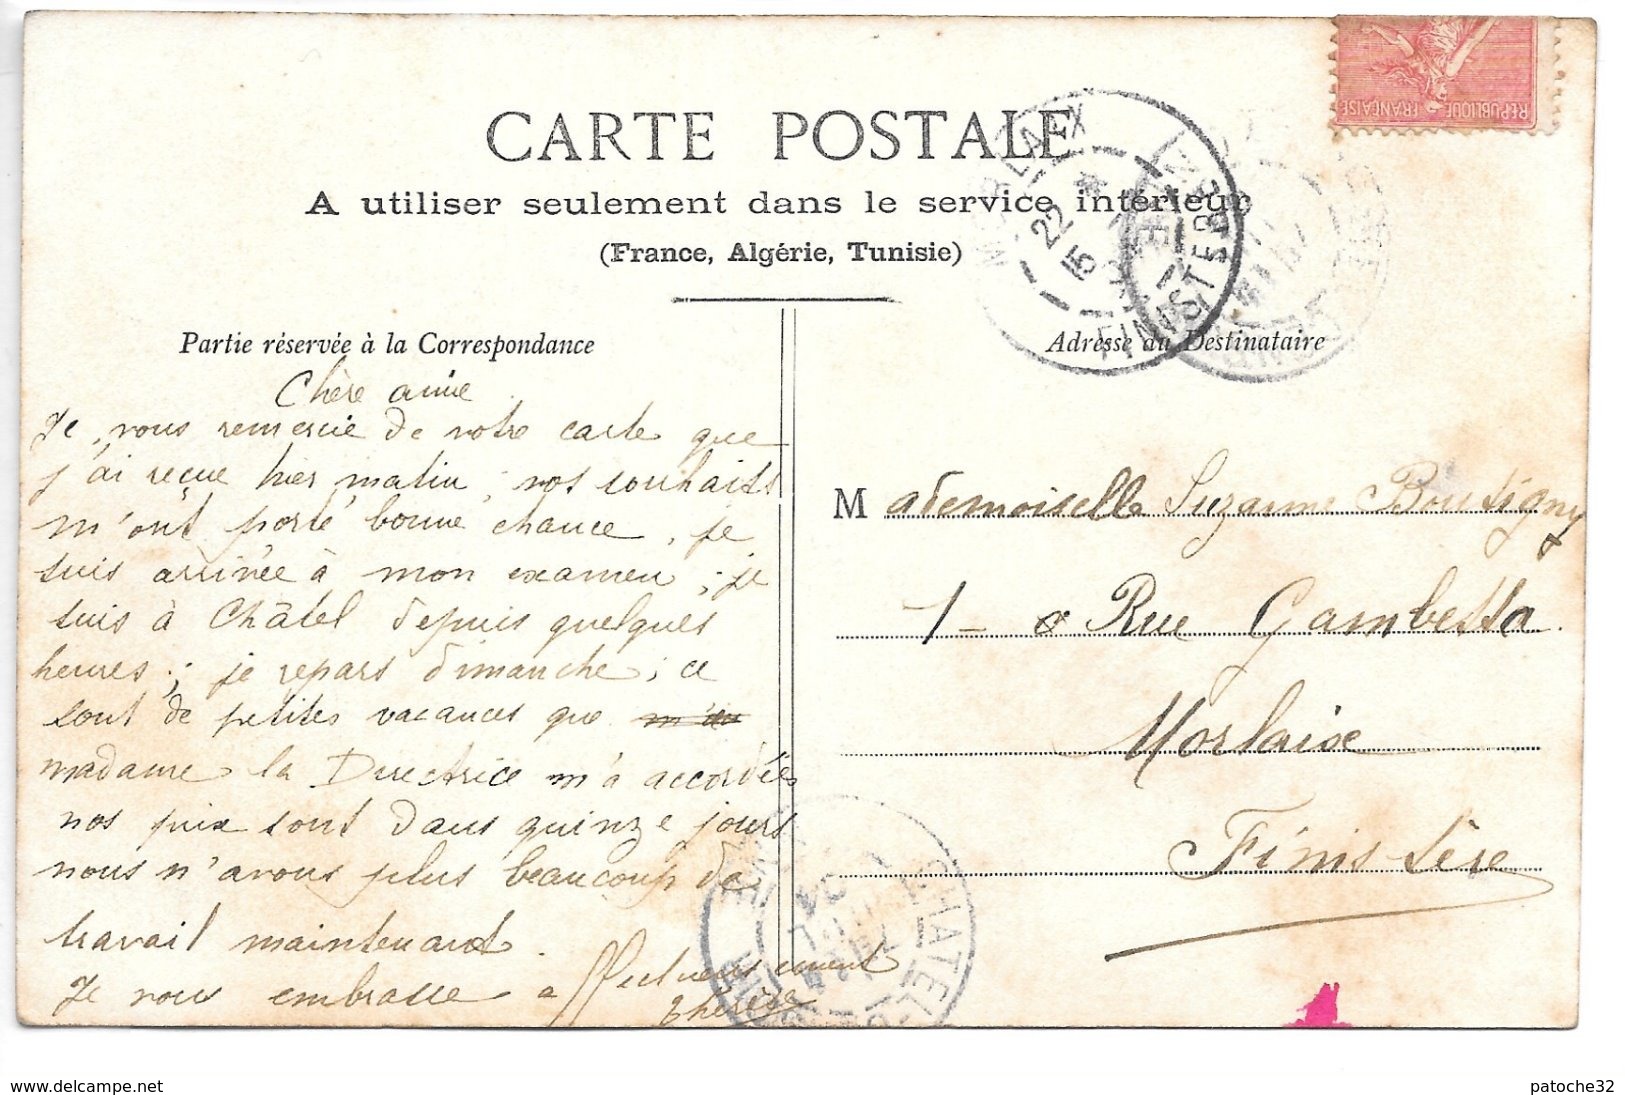 CARTE POSTALE
A utiliser seulement dans le service intérieur
(France, Algérie, Tunisie)
RÉPUBLIQUE FRANÇAISE
MORLAIX
22
15
FINISTERE
Partie réservée à la Correspondance
Chère amie
Je vous remercie de votre carte que
j'ai reçue hier matin ; vos souhaits
m'ont porté bonne chance, je
suis arrivée à mon examen ; je
suis à Châtel depuis quelques
heures ; je repars dimanche ; ce
sont de petites vacances que
madame la Directrice m'a accordées
nos prix sont dans quinze jours
nous n'avons plus beaucoup de
travail maintenant.
Je vous embrasse affectueusement
Thérèse
Adresse du Destinataire
Mademoiselle Suzanne Boutigny
1 - Rue Gambetta
Morlaix
Finistère
CHATEL
www.delcampe.net
patoche32